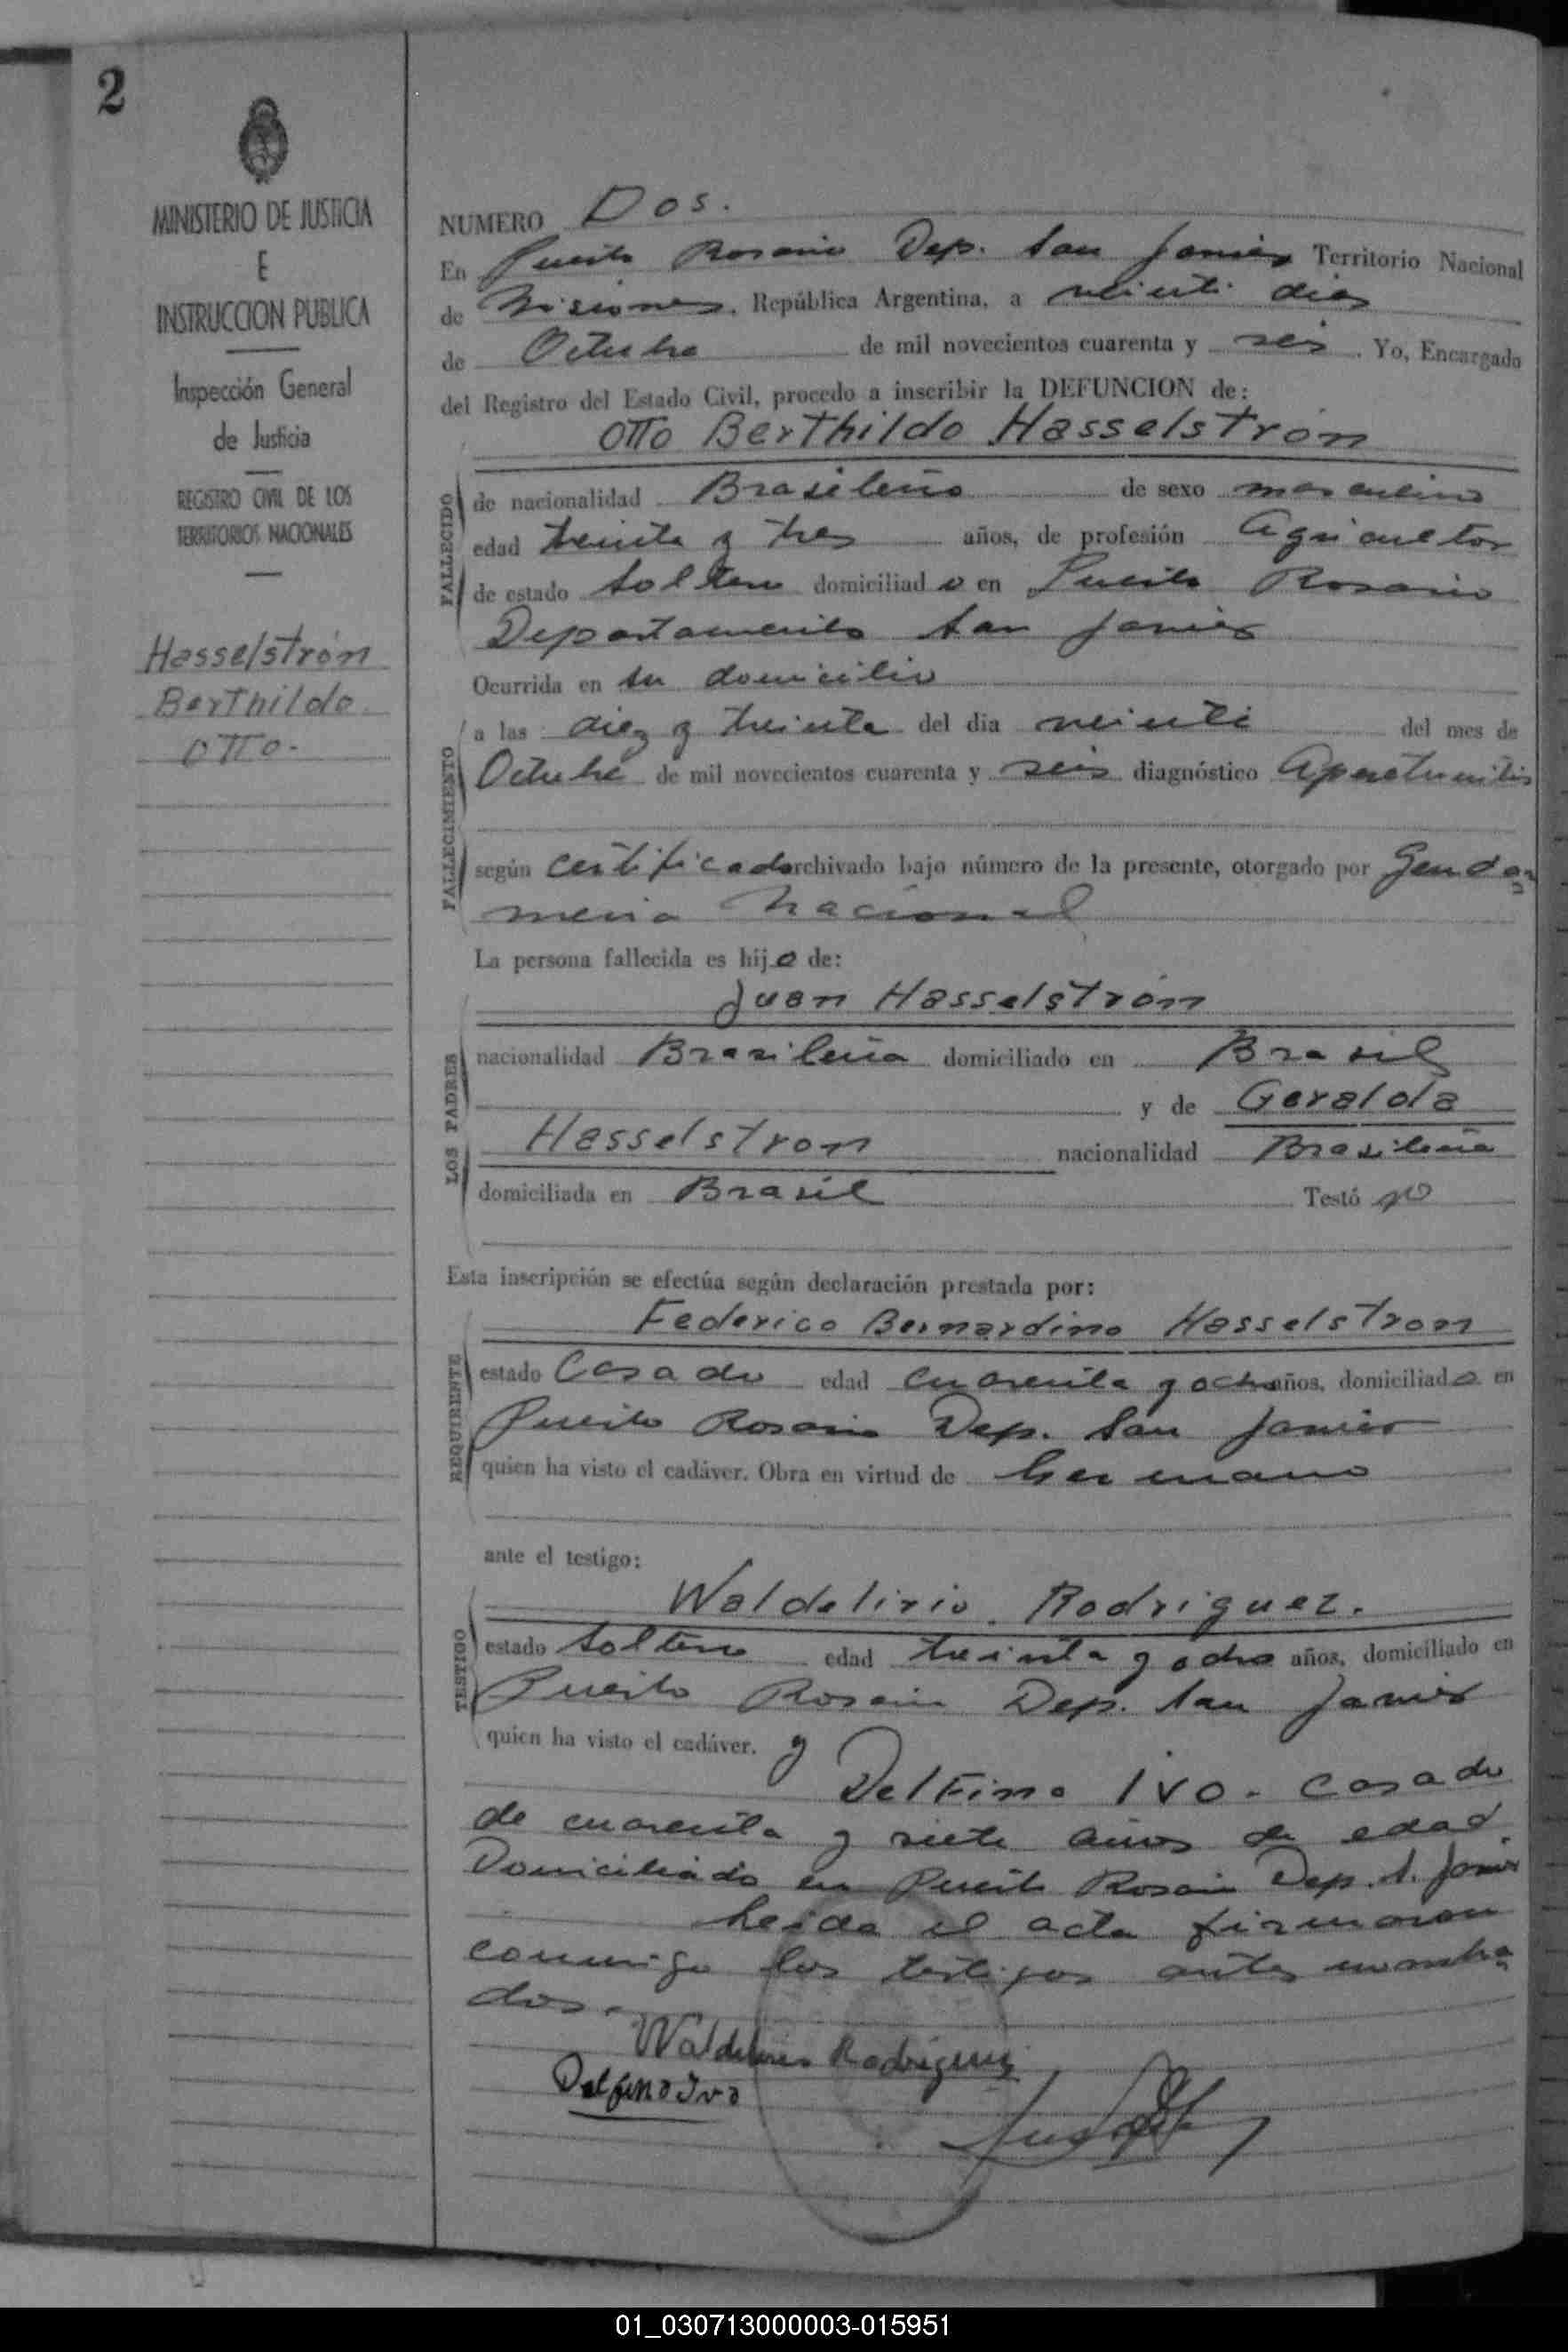 2
MINISTERIO DE JUSTICIA
E
INSTRUCCION PUBLICA
Inspección General
de Justicia
REGISTRO CIVIL DE LOS
TERRITORIOS NACIONALES
Hasselstrón
Berthildo
Otto.
NUMERO Dos.
En Puerto Rosario Dep. San Javier Territorio Nacional
de Misiones, República Argentina, a veinti dias
de Octubre de mil novecientos cuarenta y seis. Yo, Encargado
del Registro del Estado Civil, procedo a inscribir la DEFUNCION de:
Otto Berthildo Hasselstrón
FALLECIDO
de nacionalidad Brasileño de sexo masculino
edad treinta y tres años, de profesión Agricultor
de estado soltero domiciliado en Puerto Rosario
Departamento San Javier
Ocurrida en su domicilio
FALLECIMIENTO
a las diez y treinta del dia veinti del mes de
Octubre de mil novecientos cuarenta y seis diagnóstico
según certificado archivado bajo número de la presente, otorgado por Gendar
meria Nacional
La persona fallecida es hijo de:
LOS PADRES
Juan Hasselstrón
nacionalidad Brasileña domiciliado en Brasil
y de Geralda
Hasselstron nacionalidad Brasileña
domiciliada en Brasil Testó no
Esta inscripción se efectúa según declaración prestada por:
REQUIRENTE
Federico Bernardino Hasselstron
estado Casado edad cuarenta y ocho años, domiciliado en
Puerto Rosario Dep. San Javier
quien ha visto el cadáver. Obra en virtud de hermano
ante el testigo:
TESTIGO
Waldelirio Rodriguez.
estado soltero edad treinta y ocho años, domiciliado en
Puerto Rosario Dep. San Javier
quien ha visto el cadáver. y
Delfino Ivo. casado
de cuarenta y siete años de edad.
Domiciliado en Puerto Rosario Dep. S. Javier
Leida el acta firmaron
conmigo los testigos antes nombra
dos.
Waldelirio Rodriguez
Delfino Ivo
01_030713000003-015951